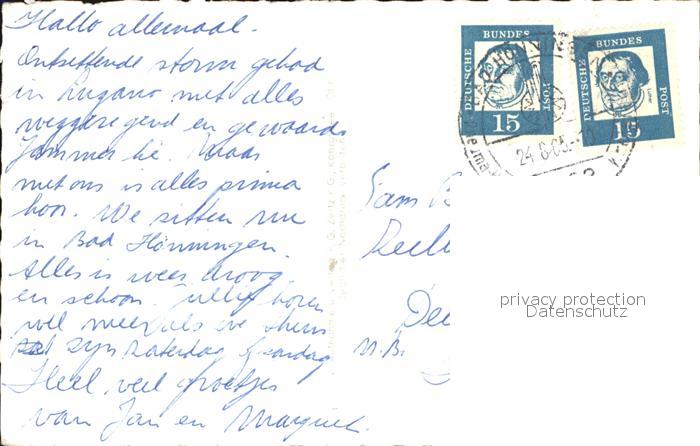 Hallo allemaal.
Ontzettende storm gehad
in Lugano met alles
weggeregend en gewaaid
Jammer hè. Maar
met ons is alles prima
hoor. We zitten nu
in Bad Hönningen.
Alles is weer droog
en schoon. Jullie horen
wel meer als we thuis
zijn zaterdag of zondag
Heel veel groetjes
van Jan en Margriet.
Fam B
N.B.
DEUTSCHE BUNDES POST
15
DEUTSCHE BUNDES POST
15
24.6.65
privacy protection
Datenschutz